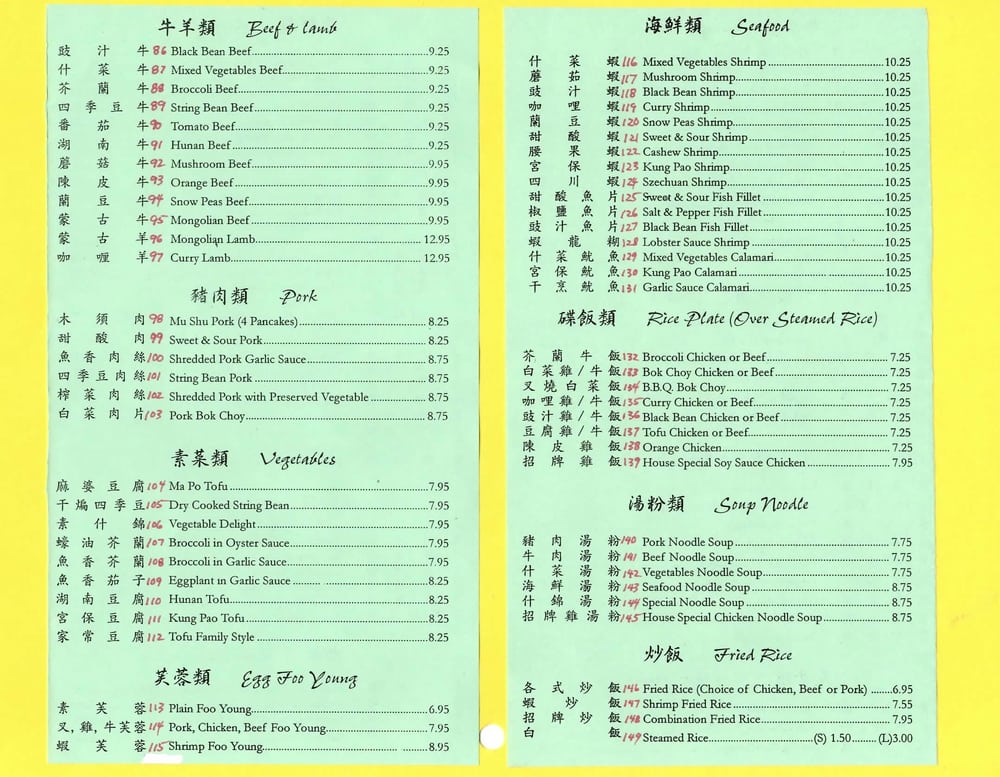 牛羊類 Beef & Lamb
豉汁牛 86 Black Bean Beef 9.25
什菜牛 87 Mixed Vegetables Beef 9.25
芥蘭牛 88 Broccoli Beef 9.25
四季豆牛 89 String Bean Beef 9.25
番茄牛 90 Tomato Beef 9.25
湖南牛 91 Hunan Beef 9.25
蘑菇牛 92 Mushroom Beef 9.95
陳皮牛 93 Orange Beef 9.95
蘭豆牛 94 Snow Peas Beef 9.95
蒙古牛 95 Mongolian Beef 9.95
蒙古羊 96 Mongolian Lamb 12.95
咖喱羊 97 Curry Lamb 12.95
豬肉類 Pork
木須肉 98 Mu Shu Pork (4 Pancakes) 8.25
甜酸肉 99 Sweet & Sour Pork 8.25
魚香肉絲 100 Shredded Pork Garlic Sauce 8.75
四季豆肉絲 101 String Bean Pork 8.75
榨菜肉絲 102 Shredded Pork with Preserved Vegetable 8.75
白菜肉片 103 Pork Bok Choy 8.75
素菜類 Vegetables
麻婆豆腐 104 Ma Po Tofu 7.95
干煸四季豆 105 Dry Cooked String Bean 7.95
素什錦 106 Vegetable Delight 7.95
蠔油芥蘭 107 Broccoli in Oyster Sauce 7.95
魚香芥蘭 108 Broccoli in Garlic Sauce 7.95
魚香茄子 109 Eggplant in Garlic Sauce 8.25
湖南豆腐 110 Hunan Tofu 8.25
宮保豆腐 111 Kung Pao Tofu 8.25
家常豆腐 112 Tofu Family Style 8.25
芙蓉類 Egg Foo Young
素芙蓉 113 Plain Foo Young 6.95
叉,雞,牛芙蓉 114 Pork, Chicken, Beef Foo Young 7.95
蝦芙蓉 115 Shrimp Foo Young 8.95
海鮮類 Seafood
什菜蝦 116 Mixed Vegetables Shrimp 10.25
蘑茹蝦 117 Mushroom Shrimp 10.25
豉汁蝦 118 Black Bean Shrimp 10.25
咖哩蝦 119 Curry Shrimp 10.25
蘭豆蝦 120 Snow Peas Shrimp 10.25
甜酸蝦 121 Sweet & Sour Shrimp 10.25
腰果蝦 122 Cashew Shrimp 10.25
宮保蝦 123 Kung Pao Shrimp 10.25
四川蝦 124 Szechuan Shrimp 10.25
甜酸魚片 125 Sweet & Sour Fish Fillet 10.25
椒鹽魚片 126 Salt & Pepper Fish Fillet 10.25
豉汁魚片 127 Black Bean Fish Fillet 10.25
蝦龍糊 128 Lobster Sauce Shrimp 10.25
什菜魷魚 129 Mixed Vegetables Calamari 10.25
宮保魷魚 130 Kung Pao Calamari 10.25
干烹魷魚 131 Garlic Sauce Calamari 10.25
碟飯類 Rice Plate (Over Steamed Rice)
芥蘭牛飯 132 Broccoli Chicken or Beef 7.25
白菜雞/牛飯 133 Bok Choy Chicken or Beef 7.25
叉燒白菜飯 134 B.B.Q. Bok Choy 7.25
咖哩雞/牛飯 135 Curry Chicken or Beef 7.25
豉汁雞/牛飯 136 Black Bean Chicken or Beef 7.25
豆腐雞/牛飯 137 Tofu Chicken or Beef 7.25
陳皮雞飯 138 Orange Chicken 7.25
招牌雞飯 139 House Special Soy Sauce Chicken 7.95
湯粉類 Soup Noodle
豬肉湯粉 140 Pork Noodle Soup 7.75
牛肉湯粉 141 Beef Noodle Soup 7.75
什菜湯粉 142 Vegetables Noodle Soup 7.75
海鮮湯粉 143 Seafood Noodle Soup 8.75
什錦湯粉 144 Special Noodle Soup 8.75
招牌雞湯粉 145 House Special Chicken Noodle Soup 8.75
炒飯 Fried Rice
各式炒飯 146 Fried Rice (Choice of Chicken, Beef or Pork) 6.95
蝦炒飯 147 Shrimp Fried Rice 7.55
招牌炒飯 148 Combination Fried Rice 7.95
白飯 149 Steamed Rice (S) 1.50 (L)3.00